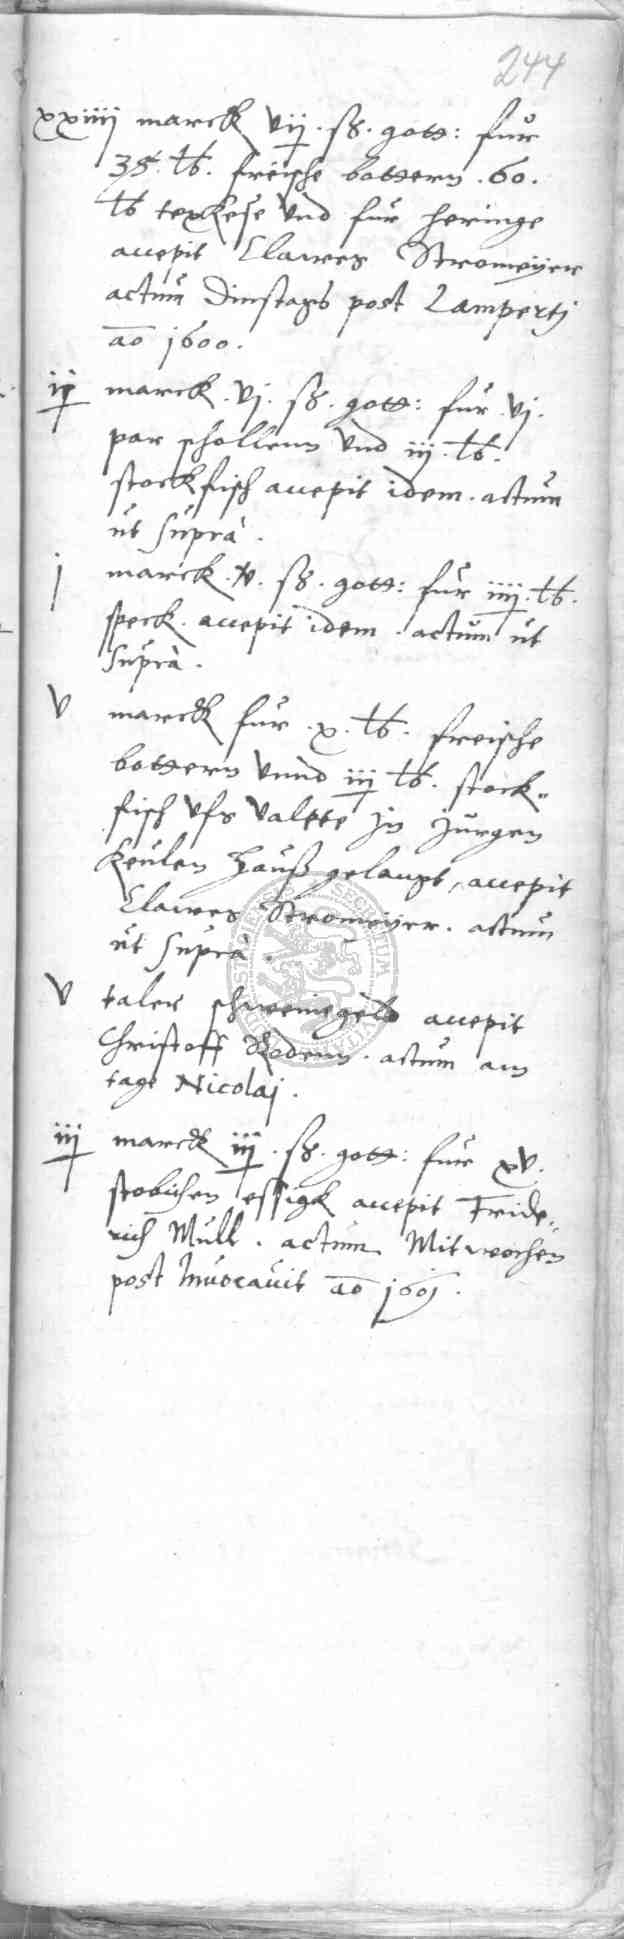 244
xxiiii marck vij. ß. gott: fur
35. lb. freische bottern. 60.
lb texkese und fur heringe
accepit Clawes Stromeyer
actum Dinstags post Lamperti
ao 1600.
ij marck. vj. ß. gott: fur. vj.
par schollenn und iij. lb.
stockfisch accepit idem. actum
ut supra.
j marck. v. ß. gott: fur iiij. lb.
speck. accepit idem. actum ut
supra.
v marck fur. x. lb. freische
bottern unnd iij lb. stock=
fisch ufs valete in Jurgen
Keulen hauß gelangt, accepit
Clawes Stromeyer. actum
ut supra.
v taler schweinegelt accepit
Christoff Rodenn. actum am
tage Nicolai.
iij marck iij. ß. gott: fur xv.
stobichen essigk accepit Fride=
rich Mull. actum Mitwochen
post Invocavit ao 1601.